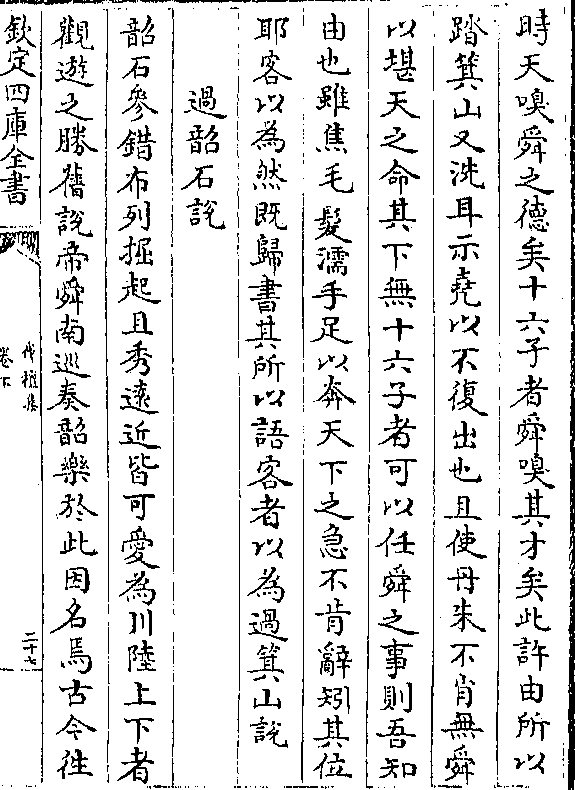 時天嗅舜之德矣十六子者舜嗅其才矣此許由所以
踏箕山又洗耳示堯以不復出也且使丹朱不肖無舜
以堪天之命其下無十六子者可以任舜之事則吾知
由也雖焦毛髮濡手足以奔天下之急不肯辭矧其位
耶客以為然既歸書其所以語客者以為過箕山說
過韶石說
韶石參錯布列掘起且秀遠近皆可愛為川陸上下者
觀遊之勝舊說帝舜南巡奏韶樂於此因名焉古今往
欽定四庫全書
伐檀集
卷下
二十七